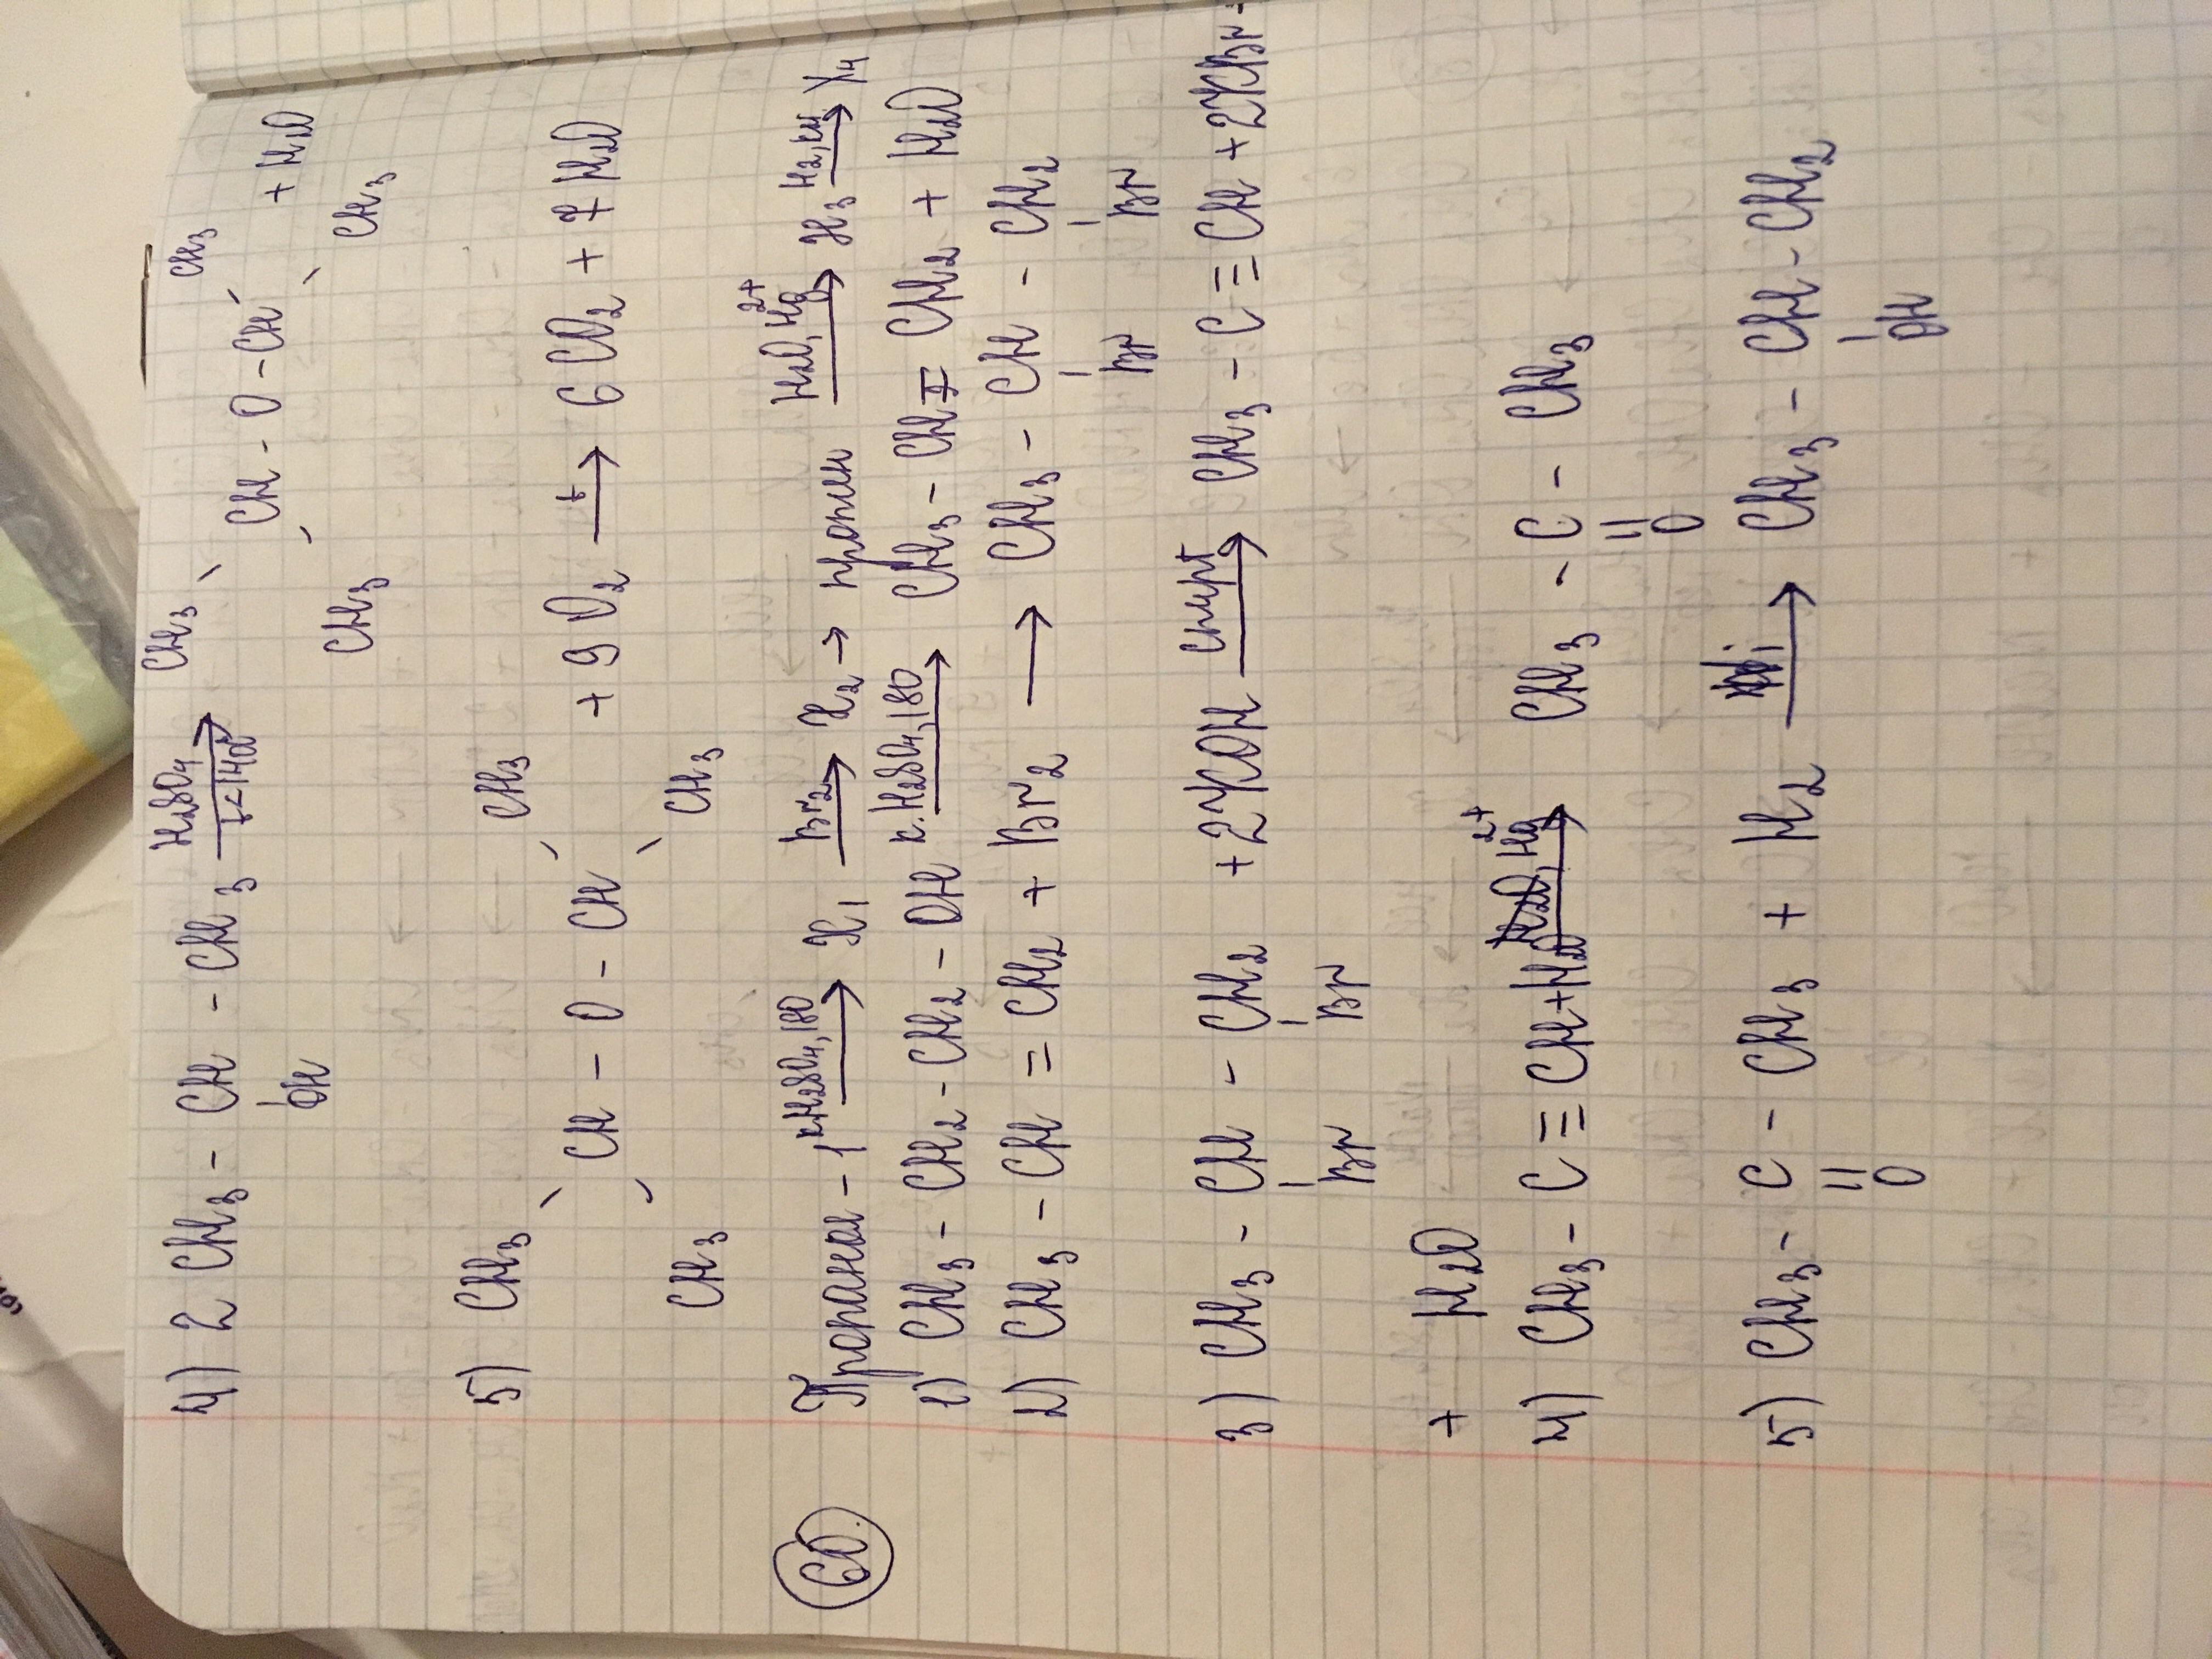 4) 2 CH3 - CH - CH3 H2SO4 t<140° → CH3 CH - O - CH CH3 + H2O
OH CH3 CH3
5) CH3 CH3
CH - O - CH + 9 O2 t → 6 CO2 + 7 H2O
CH3 CH3
60. Пропанол - 1 к.H2SO4, 180 → X1 Br2 → X2 → пропин H2O, Hg2+ → X3 H2, кат → X4
1) CH3 - CH2 - CH2 - OH к.H2SO4, 180 → CH3 - CH = CH2 + H2O
2) CH3 - CH = CH2 + Br2 → CH3 - CH - CH2
Br Br
3) CH3 - CH - CH2 + 2KOH спирт → CH3 - C ≡ CH + 2KBr +
Br Br
+ H2O
4) CH3 - C ≡ CH + H2O Hg2+ → CH3 - C - CH3
O
5) CH3 - C - CH3 + H2 Ni → CH3 - CH - CH2
O OH